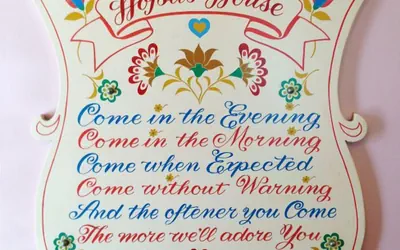 House
Come in the Evening
Come in the Morning
Come when Expected
Come without Warning
And the oftener you Come
The more we'll adore You